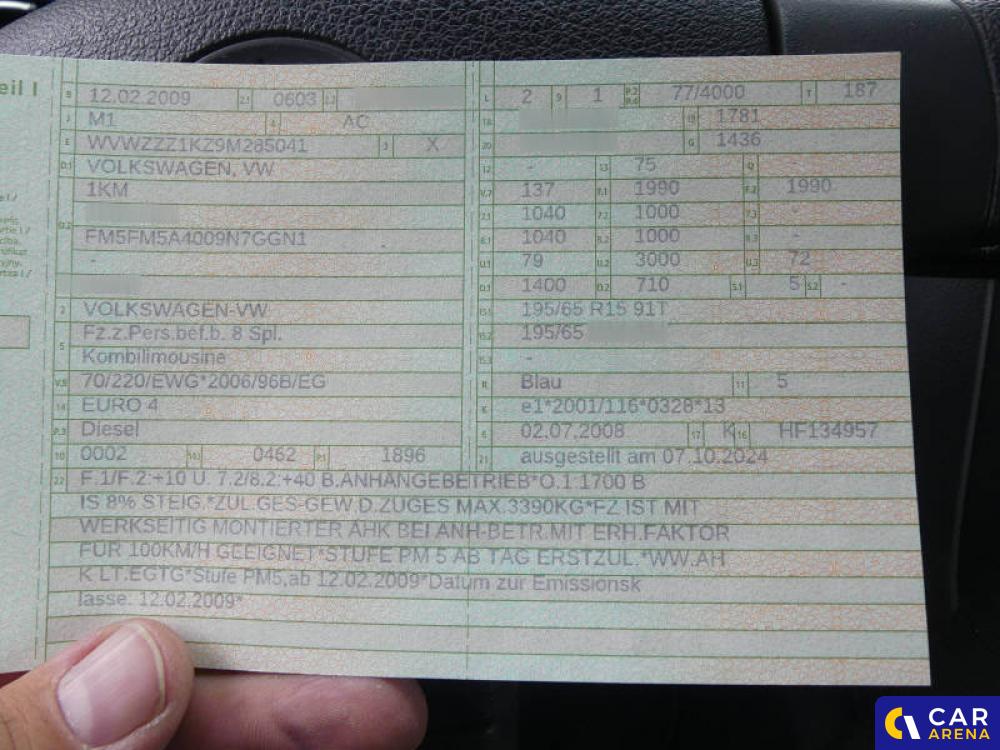 eil I
B 12.02.2009 2.1 0603 2.2
J M1 4 AC
E WVWZZZ1KZ9M285041 3 X
D.1 VOLKSWAGEN, VW
1KM
D.2 FM5FM5A4009N7GGN1 -
-
2 VOLKSWAGEN-VW
5 Fz.z.Pers.bef.b. 8 Spl.
Kombilimousine
V.9 70/220/EWG*2006/96B/EG
14 EURO 4
P.3 Diesel
10 0002 14.1 0462 P.1 1896
L 2 9 1 P.2 P.4 77/4000 T 187
18 19 1781
20 G 1436
12 - 13 75 Q -
V.7 137 F.1 1990 F.2 1990
7.1 1040 7.2 1000 7.3 -
8.1 1040 8.2 1000 8.3 -
U.1 79 U.2 3000 U.3 72
O.1 1400 O.2 710 S.1 5 S.2 -
15.1 195/65 R15 91T
15.2 195/65
15.3 -
R Blau 11 5
K e1*2001/116*0328*13
6 02.07.2008 17 K 16 HF134957
21 ausgestellt am 07.10.2024
22 F.1/F.2:+10 U. 7.2/8.2:+40 B.ANHÄNGEBETRIEB*O.1:1700 B
IS 8% STEIG.*ZUL.GES-GEW.D.ZUGES MAX.3390KG*FZ IST MIT
WERKSEITIG MONTIERTER AHK BEI ANH-BETR.MIT ERH.FAKTOR
FÜR 100KM/H GEEIGNET*STUFE PM 5 AB TAG ERSTZUL.*WW.AH
K LT.EGTG*Stufe PM5,ab 12.02.2009*Datum zur Emissionsk
lasse: 12.02.2009*
CAR
ARENA